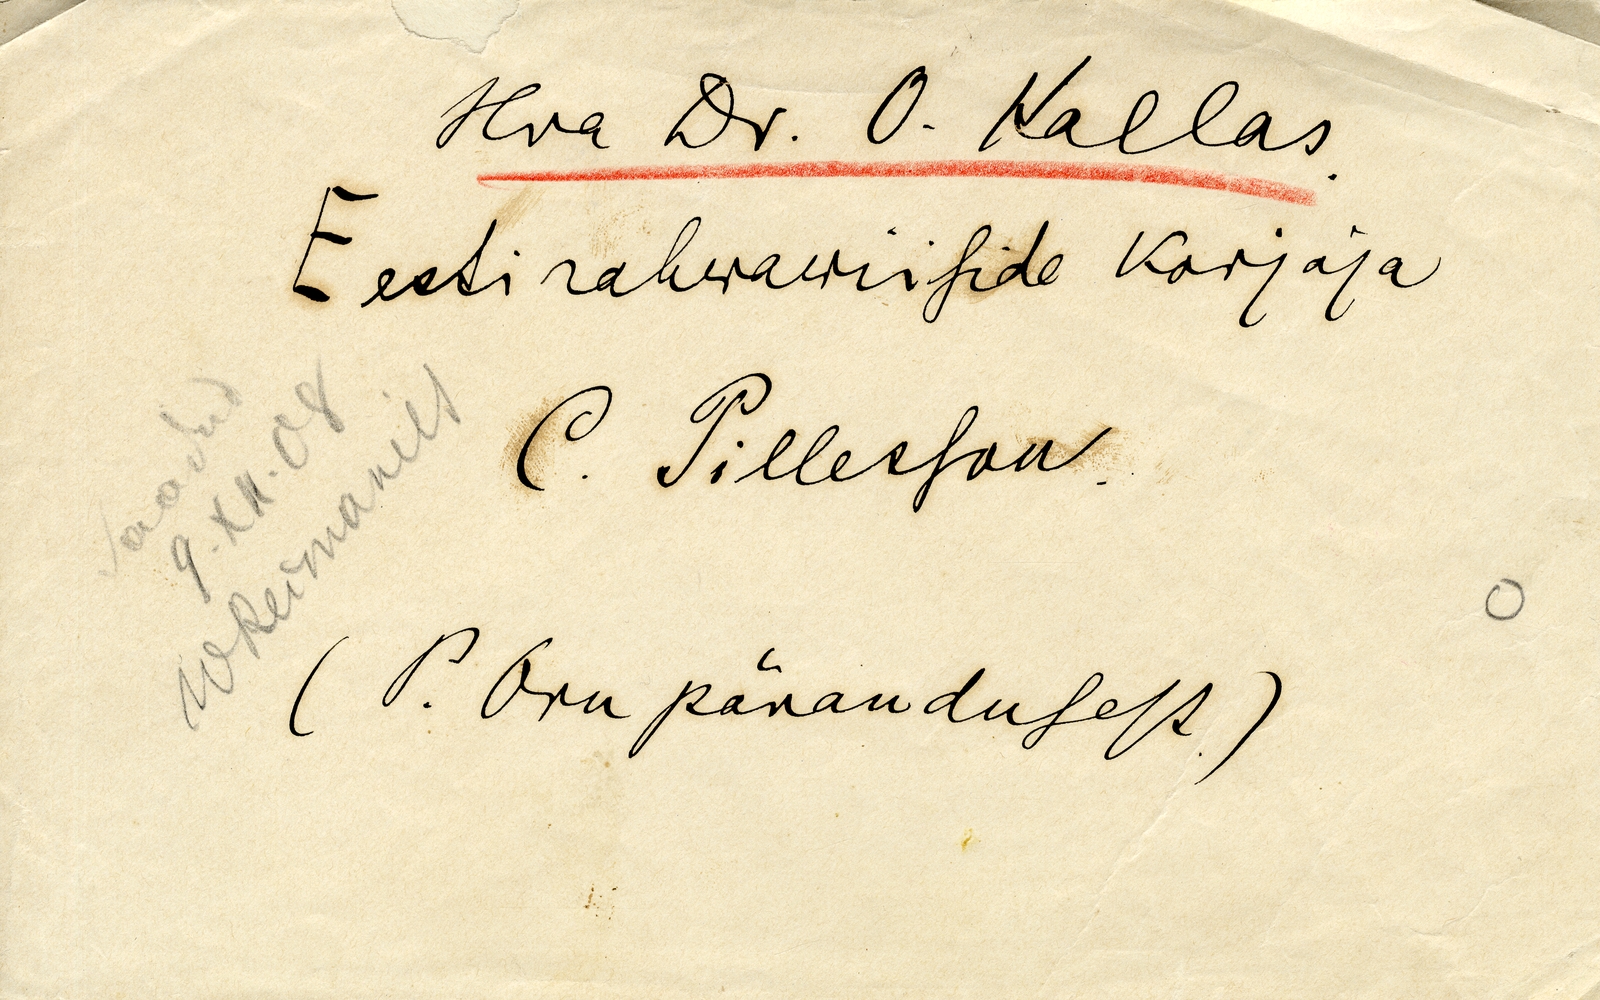 Hra Dr. O. Kallas.
Eesti rahwawiiside Korjaja
C. Pillesson.
(P. Oru pärandusest.)
saadud
9.XII.08
W Reimanilt
O